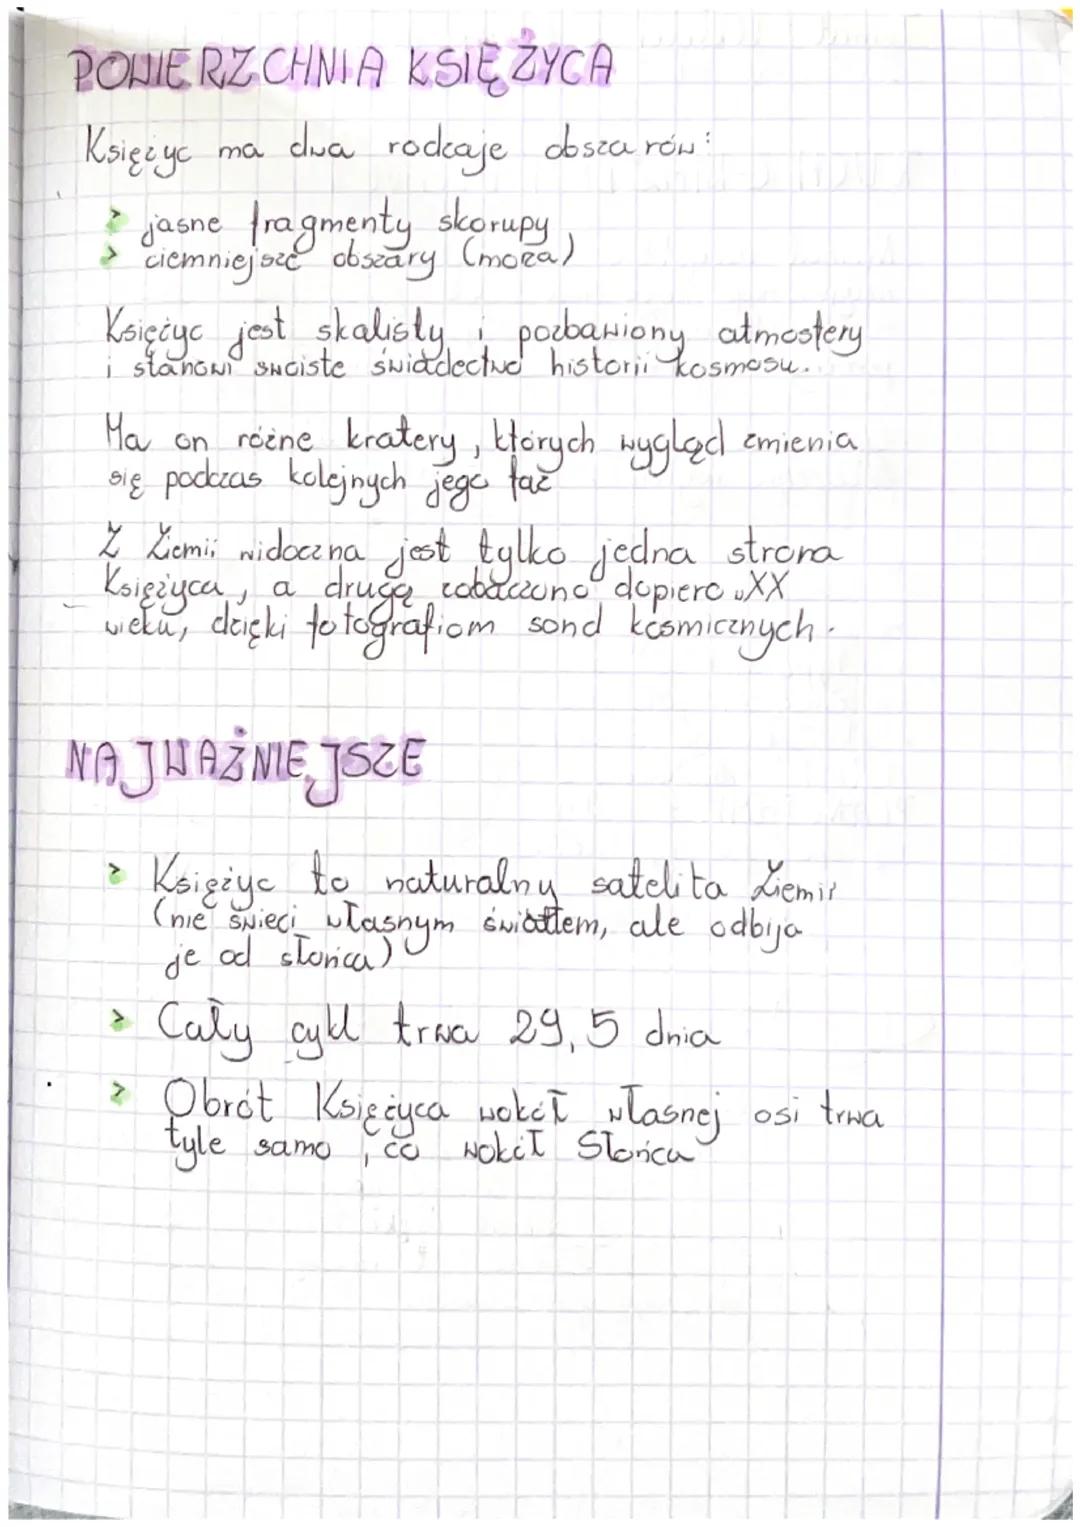 POWIERZCHNIA KSIĘŻYCA
Księżyc ma dwa rodzaje obszarów:
> jasne fragmenty skorupy,
> ciemniejsze obszary (moza)
Księżyc jest skalisty i pozbawiony atmosfery
i stanowi swoiste świadectwo historii kosmosu.
Ma on różne kratery, których wygląd zmienia
się podczas kolejnych jego faz
Z Ziemii widoczna jest tylko jedna strona
Księżyca, a drugą zobaczono dopiero w XX
wieku, dzięki fotografiom sond kosmicznych.
NAJWAŻNIEJSZE
> Księżyc to naturalny satelita Ziemii
(nie świeci własnym światłem, ale odbija
je od słońca)
> Cały cykl trwa 29,5 dnia
> Obrót Księżyca wokół własnej osi trwa
tyle samo, co wokół Słońca